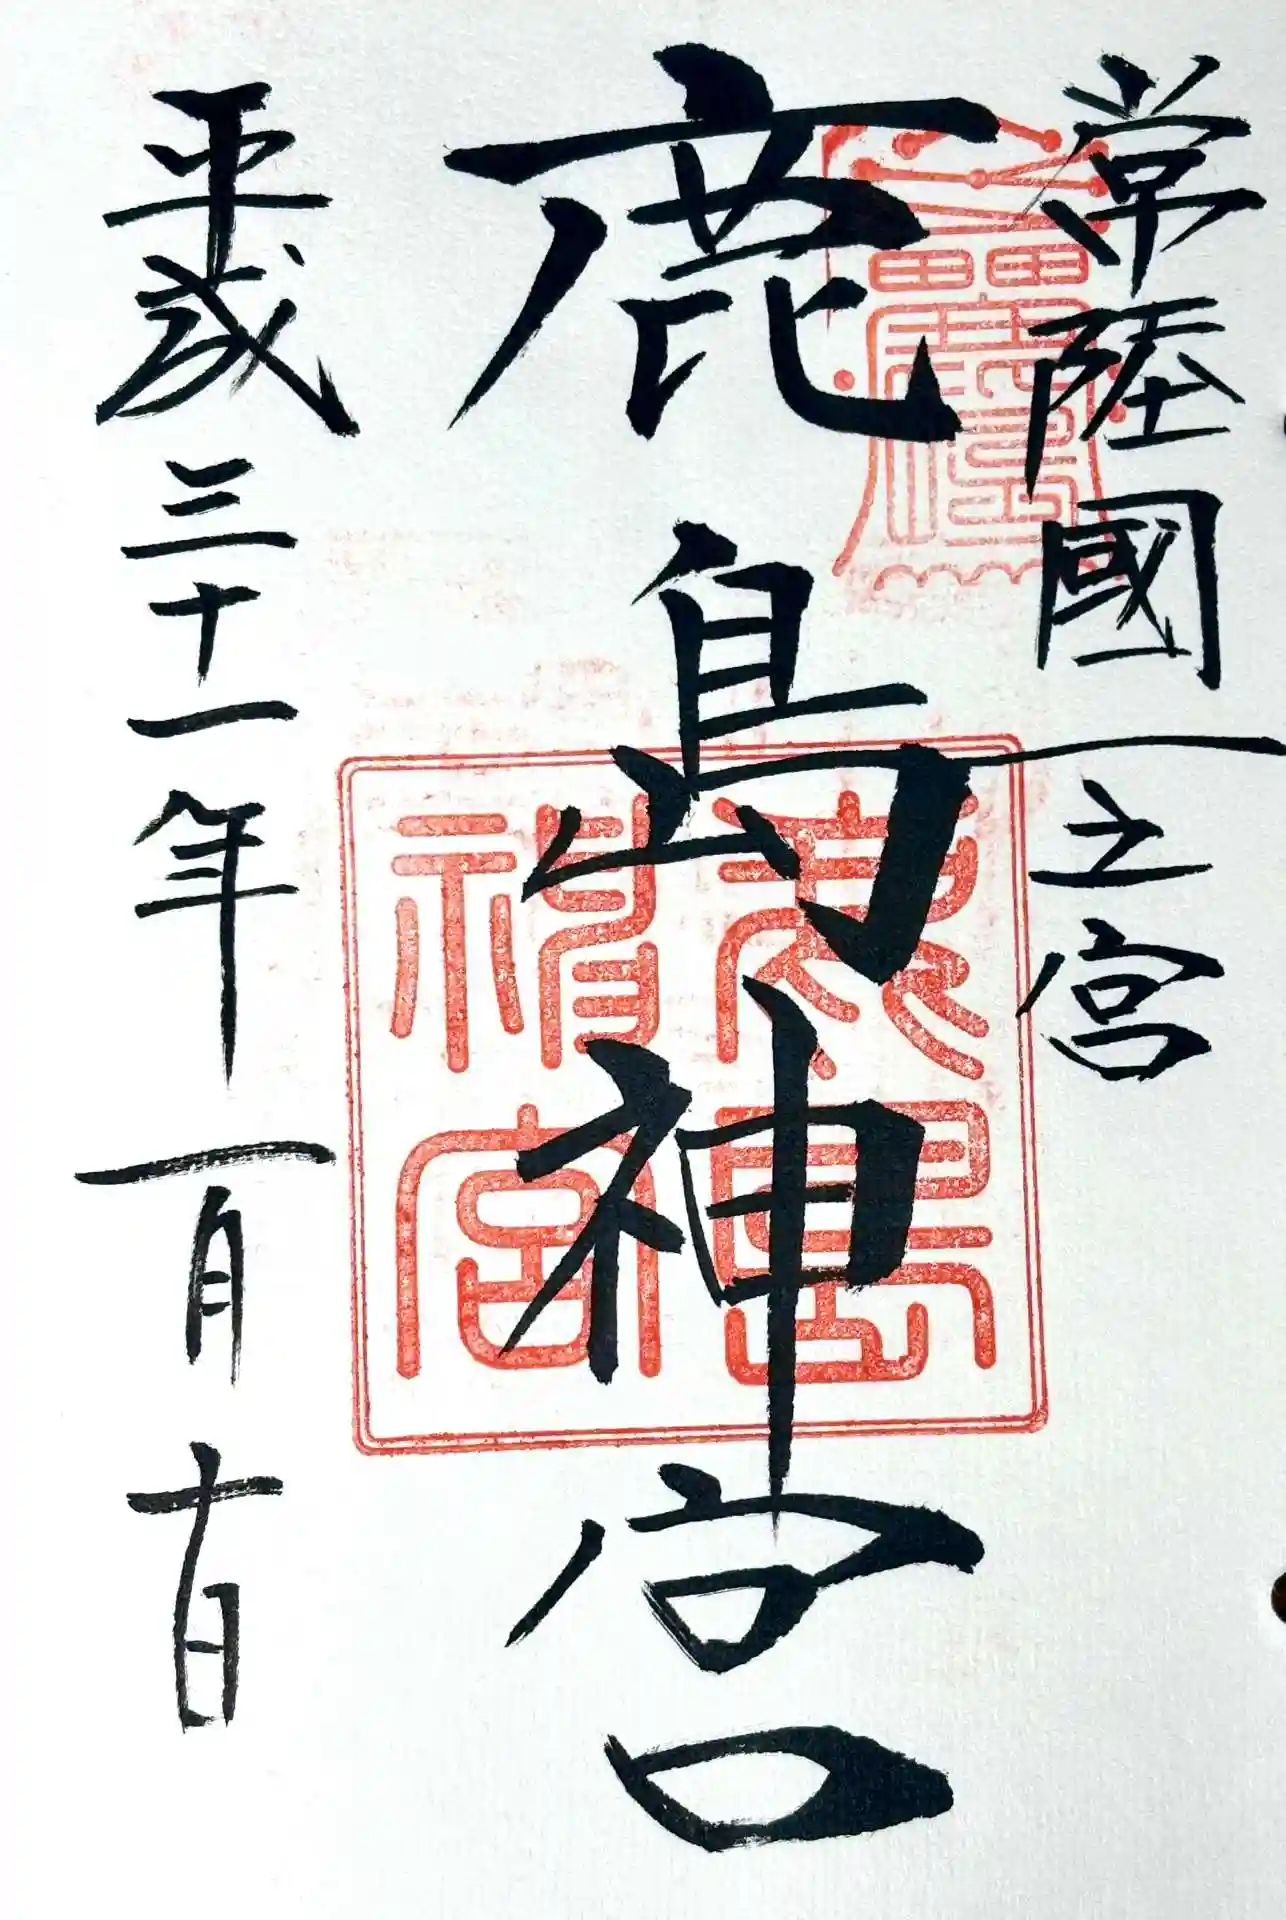 常陸國一之宮
鹿島神宮
平成三十一年一月十日
鹿島神宮